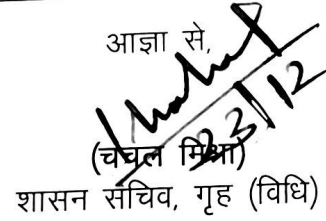 आज्ञा से,
23/12
(चंचल मिश्रा)
शासन सचिव, गृह (विधि)